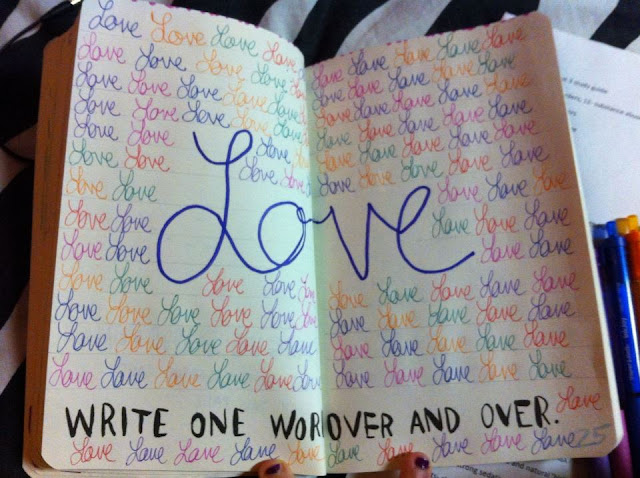 Love Love Love Love
Love Love Love Love Love
Love Love Love Love Love
Love Love Love Love Love
Love Love Love Love
Love Love Love Love
Love Love
Love Love
Love Love
Love Love Love Love Love
Love Love Love Love Love Love
Love Love Love Love Love
Love Love Love Love Love Love
Love Love Love Love Love
Love Love Love Love
Love Love Love Love Love
Love Love Love Love Love
Love Love Love Love Love
Love Love Love Love Love
Love Love Love Love Love
Love Love Love
Love Love Love
Love Love
Love Love Love Love Love
Love Love Love Love Love
Love Love Love Love Love
Love Love Love Love Love
Love
WRITE ONE WOR OVER AND OVER. Love
Love Love Love Love Love Love Love Love Love 25
3 study guide
10- substance